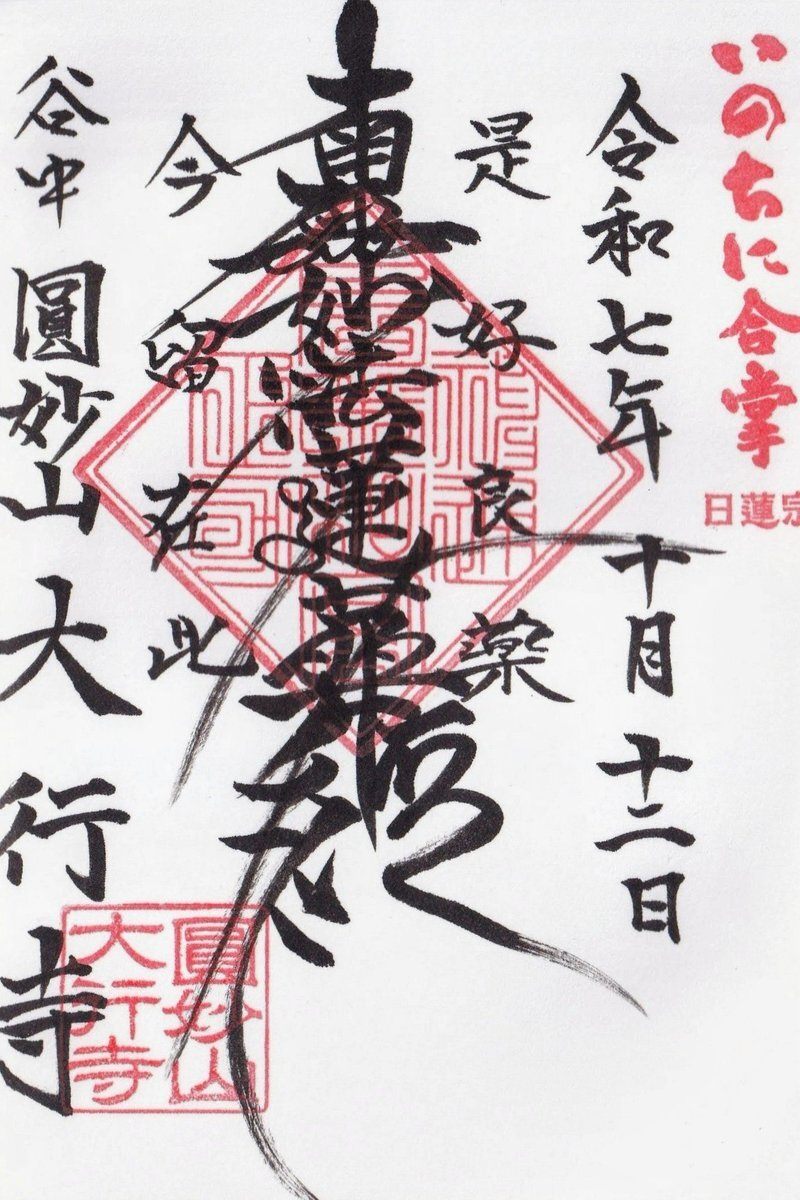 いのちに合掌
日蓮宗
令和七年 十月 十二日
是好良薬
南無妙法蓮華経
今留在此
谷中 圓妙山 大行寺
圓妙山
大行寺